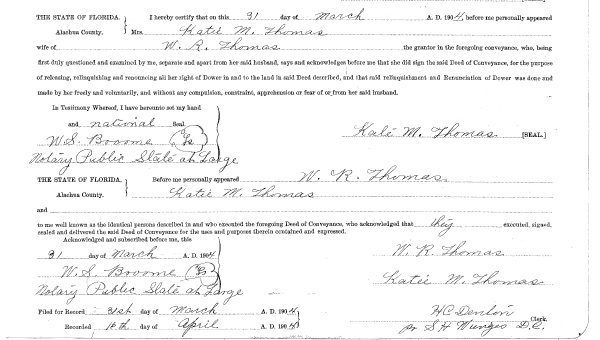 THE STATE OF FLORIDA. } I hereby certify that on this 31 day of March A. D. 1904, before me personally appeared
Alachua County. Mrs. Katie M. Thomas
wife of W. R. Thomas the grantor in the foregoing conveyance, who, being
first duly questioned and examined by me, separate and apart from her said husband, says and acknowledges before me that she did sign the said Deed of Conveyance, for the purpose
of releasing, relinquishing and renouncing all her right of Dower in and to the land in said Deed described, and that said relinquishment and Renunciation of Dower was done and
made by her freely and voluntarily, and without any compulsion, constraint, apprehension or fear of or from her said husband.
In Testimony Whereof, I have hereunto set my hand
and national Seal
W. S. Broome (LS) Katie M. Thomas [SEAL.]
Notary Public State at Large
THE STATE OF FLORIDA. } Before me personally appeared W. R. Thomas
Alachua County. Katie M. Thomas
and
to me well known as the identical persons described in and who executed the foregoing Deed of Conveyance, who acknowledged that they executed, signed,
sealed and delivered the said Deed of Conveyance for the uses and purposes therein contained and expressed.
Acknowledged and subscribed before me, this
31 day of March A. D. 1904 W. R. Thomas
W. S. Broome (LS) Katie M. Thomas
Notary Public State at Large
Filed for Record 31st day of March A. D. 1904 H C Denton Clerk.
Recorded day of April A. D. 1904 pr S H D. C.